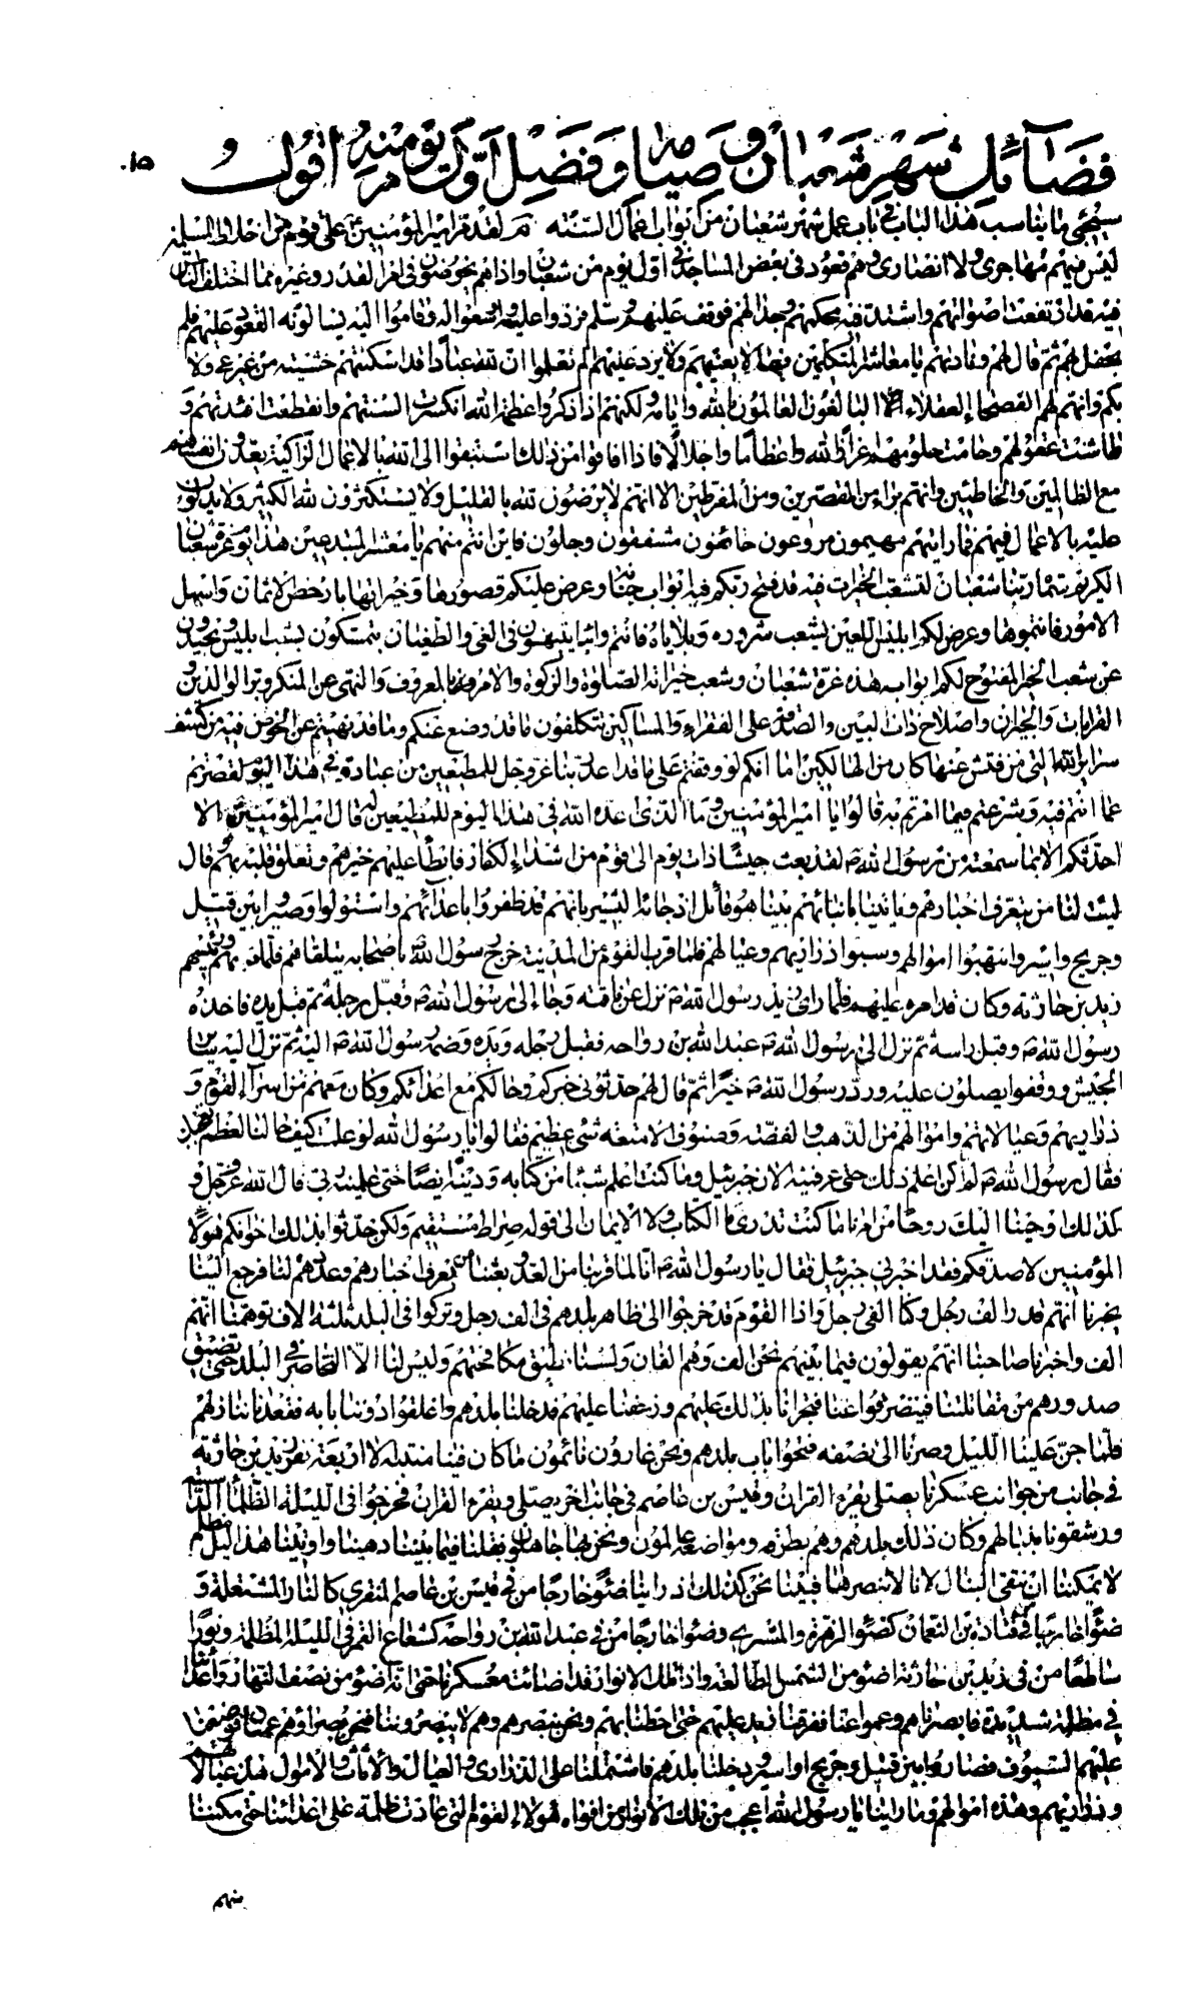 فضائل شهر شعبان وصيامه وفضل أول يوم منه أقول و
سيجئ ما يناسب هذا الباب في باب عمل شهر شعبان من أبواب أعمال السنة م لقد مر أمير المؤمنين ع على قوم من أخلاط المسلمين
ليس فيهم مهاجري ولا أنصاري وهم قعود في بعض المساجد في أول يوم من شعبان وإذا هم يخوضون في أمر القدر وغيره مما اختلف الناس
فيه قد ارتفعت أصواتهم واشتد فيه محكهم وجدالهم فوقف عليهم وسلم فردوا عليه وأوسعوا له وقاموا إليه يسألونه القعود إليهم فلم
يحفل بهم ثم قال لهم وناداهم يا معاشر المتكلمين فيما لا يعنيهم ولا يرد عليهم ألم تعلموا أن لله عبادا قد أسكتتهم خشيته من غير عي ولا
بكم وأنهم لهم الفصحاء العقلاء الألباء البالغون العالمون بالله وأيامه ولكنهم إذا ذكروا عظمة الله انكسرت ألسنتهم وانقطعت أفئدتهم و
طاشت عقولهم وحامت حلومهم إعزازا لله وإعظاما وإجلالا فإذا أفاقوا من ذلك استبقوا إلى الله بالأعمال الزاكية يعدون أنفسهم
مع الظالمين والخاطئين وأنهم براء من المقصرين ومن المفرطين إلا أنهم لا يرضون لله بالقليل ولا يستكثرون لله الكثير ولا يدلون
عليه بالأعمال فهم فما رأيتهم مهيمون مروعون خائفون مشفقون وجلون فأين أنتم منهم يا معشر المبتدعين هذا يوم غرة شعبان
الكريم سماه ربنا شعبان لتشعب الخيرات فيه قد فتح ربكم فيه أبواب جنانه وعرض عليكم قصورها وخيراتها بأرخص الأثمان وأسهل
الأمور فابتموها وعرض لكم إبليس اللعين بشعب شروره وبلاياه فأنتم دائبا تتيهون في الغي والطغيان تتمسكون بشعب إبليس وتحيدون
عن شعب الخير المفتوح لكم أبوابه هذه غرة شعبان وشعب خيراته الصلوة والزكوة والأمر بالمعروف والنهي عن المنكر وبر الوالدين و
القرابات والجيران وإصلاح ذات البين والصدقة على الفقراء والمساكين تتكلفون ما قد وضع عنكم وما قد نهيتم عن الخوض فيه من كشف
سرائر الله التي من فتش عنها كان من الهالكين أما إنكم لو وقفتم على ما قد أعد ربنا عز وجل للمطيعين من عباده في هذا اليوم لقصرتم
عما أنتم فيه وشرعتم فيما أمرتم به قالوا يا أمير المؤمنين وما الذي أعده الله في هذا اليوم للمطيعين له قال أمير المؤمنين ع ألا
أحدثكم إلا بما سمعته من رسول الله ص لقد بعث جيشا ذات يوم إلى قوم من أشداء الكفار فأبطأ عليهم خبرهم وتعلق قلبه بهم قال
ليت لنا من يتعرف أخبارهم ويأتينا بأنبائهم بينا هو قائل إذ جاءه البشير بأنهم قد ظفروا بأعدائهم واستولوا وصيروا بين قتيل
وجريح وأسير وانتهبوا أموالهم وسبوا ذراريهم وعيالهم فلما قرب القوم من المدينة خرج رسول الله ص بأصحابه يتلقاهم فلما لقيهم ورئيسهم
زيد بن حارثة وكان قد أمره عليهم فلما رأى زيد رسول الله ص نزل عن ناقته وجاء إلى رسول الله ص وقبل رجله ثم قبل يده فأخذه
رسول الله ص وقبل رأسه ثم نزل إلى رسول الله ص عبد الله بن رواحة فقبل رجله ويده وضمه رسول الله ص إليه ثم نزل إليه سائر
الجيش ووقفوا يصلون عليه ورد رسول الله ص خيرا ثم قال لهم حدثوني خبركم وحالكم مع أعدائكم وكان معهم من أسراء القوم و
ذراريهم وعيالاتهم وأموالهم من الذهب والفضة وصنوف الأمتعة شئ عظيم فقالوا يا رسول الله لو علمت كيف حالنا لعظم تعجبك
فقال رسول الله ص لم أكن أعلم ذلك حتى عرفنيه الآن جبرئيل وما كنت أعلم شيئا من كتابه ودينه أيضا حتى علمنيه ربي قال الله عز وجل و
كذلك أوحينا إليك روحا من أمرنا ما كنت تدري ما الكتاب ولا الإيمان إلى قوله صراط مستقيم ولكن حدثوا بذلك إخوانكم هؤلاء
المؤمنين لأصدقكم فقد أخبرني جبرئيل فقال يا رسول الله ص إنا لما قربنا من العدو بعثنا عينا لنا ليعرف أخبارهم وعددهم لنا فرجع إلينا
يخبرنا أنهم قدر ألف رجل وكنا ألفي رجل وإذا القوم قد خرجوا إلى ظاهر بلدهم في ألف رجل وتركوا في البلد ثلثة آلاف توهمنا أنهم
ألف وأخبرنا صاحبنا أنهم يقولون فيما بينهم نحن ألف وهم ألفان ولسنا نطيق مكافحتهم وليس لنا إلا التحاصر في البلد حتى تضيق
صدورهم من مقاتلتنا فينصرفوا عنا فتجرأنا بذلك عليهم وزحفنا عليهم فدخلنا بلدهم وأغلقوا دوننا بابه فقعدنا ننازلهم
فلما جن علينا الليل وصرنا إلى نصفه فتحوا باب بلدهم ونحن غارون نائمون ما كان فينا منتبه إلا أربعة نفر زيد بن حارثة
في جانب من جوانب عسكرنا يصلي يقرء القرآن وقيس بن عاصم في جانب آخر يصلي ويقرء القرآن فخرجوا في الليلة الظلماء الدامسة
ورشقونا بنبالهم وكان ذلك بلدهم وهم بطرقه ومواضعه عالمون ونحن بها جاهلون فقلنا فيما بيننا دهينا وأوتينا هذا ليل مظلم
لا يمكننا أن نتقي النبال لأنا لا نبصرها فبينا نحن كذلك إذ رأينا ضوءا خارجا من في قيس بن عاصم المنقري كالنار المشتعلة و
ضوءا خارجا من في قتادة بن النعمان كضوء الزهرة والمشتري وضوءا خارجا من في عبد الله بن رواحة كشعاع القمر في الليلة المظلمة ونورا
ساطعا من في زيد بن حارثة أضوء من الشمس الطالعة وإذا تلك الأنوار قد أضاءت معسكرنا حتى أنه أضوء من نصف النهار وأعداؤنا
في ظلمة شديدة فأبصرناهم وعموا عنا ففرقنا زيد عليهم حتى أحطنا بهم ونحن نبصرهم وهم لا يبصروننا فنحن بصراء وهم عميان فوضعنا
عليهم السيوف فصاروا بين قتيل وجريح وأسير ودخلنا بلدهم فاشتملنا على الذراري والعيال والأثاث والأموال هذه عيالاتهم
وذراريهم وهذه أموالهم وما رأينا يا رسول الله أعجب من تلك الأنوار من أفواه هؤلاء القوم التي عادت ظلمة على أعدائنا حتى مكننا
منهم